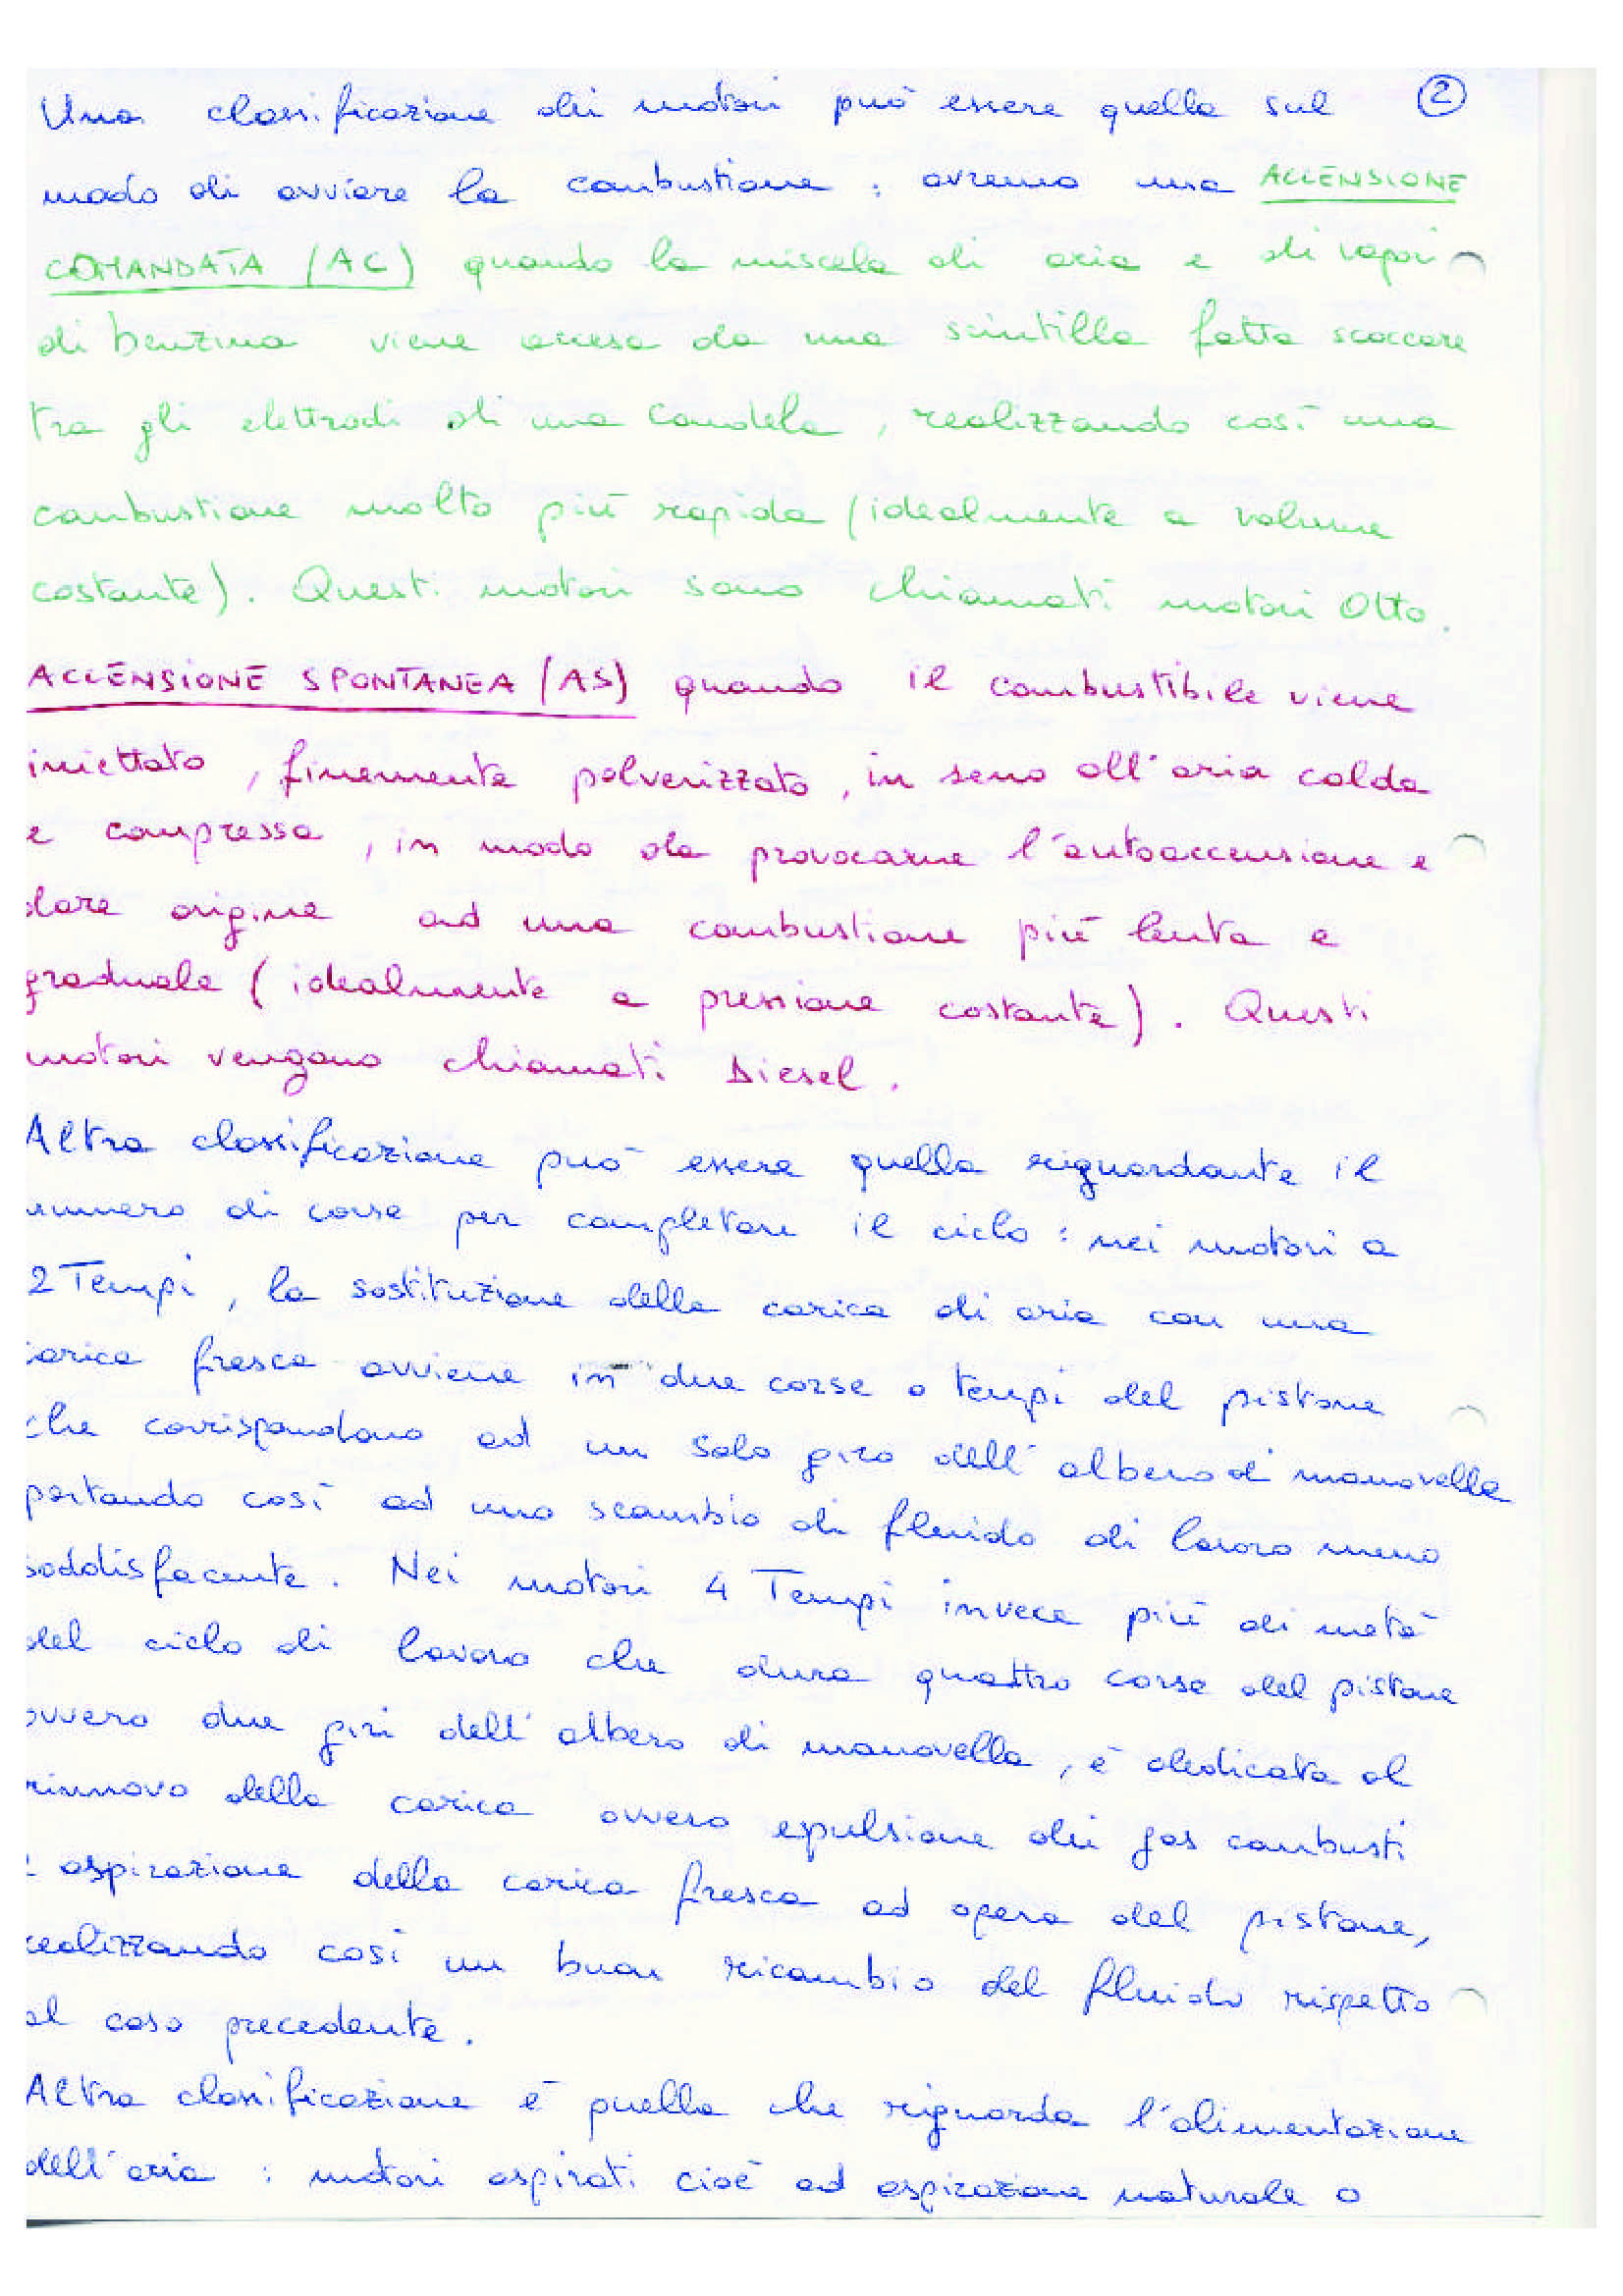 Una classificazione dei motori può essere quella sul ②
modo di avviare la combustione : avremo una ACCENSIONE
COMANDATA (AC) quando la miscela di aria e di vapori
di benzina viene accesa da una scintilla fatta scoccare
tra gli elettrodi di una candela, realizzando così una
combustione molto più rapida (idealmente a volume
costante). Questi motori sono chiamati motori Otto.
ACCENSIONE SPONTANEA (AS) quando il combustibile viene
iniettato, finemente polverizzato, in seno all'aria calda
e compressa, in modo da provocarne l'autoaccensione e
dare origine ad una combustione più lenta e
graduale (idealmente a pressione costante). Questi
motori vengono chiamati Diesel.
Altra classificazione può essere quella riguardante il
numero di corse per completare il ciclo : nei motori a
2 Tempi, la sostituzione della carica di aria con una
carica fresca avviene in due corse o tempi del pistone
che corrispondono ad un solo giro dell'albero di manovella
portando così ad uno scambio di fluido di lavoro meno
soddisfacente. Nei motori 4 Tempi invece più di metà
del ciclo di lavoro che dura quattro corse del pistone
ovvero due giri dell'albero di manovella, è dedicata al
rinnovo della carica ovvero epulsione dei gas combusti
e aspirazione della carica fresca ad opera del pistone,
realizzando così un buon ricambio del fluido rispetto
al caso precedente.
Altra classificazione è quella che riguarda l'alimentazione
dell'aria : motori aspirati cioè ad aspirazione naturale o